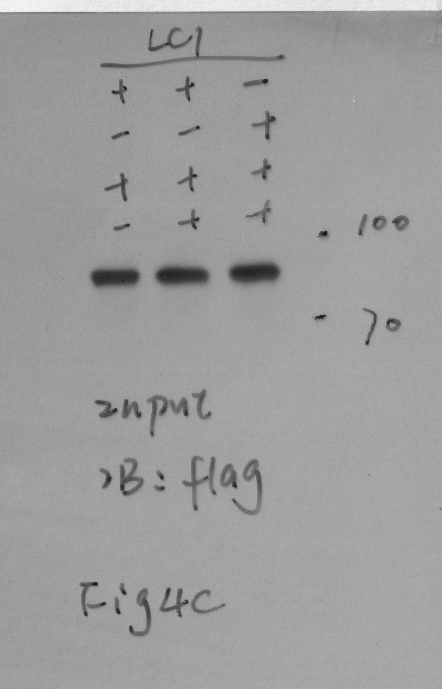 LC1
+ + -
- - +
+ + +
- + +
100
70
Input
IB: flag
Fig4c